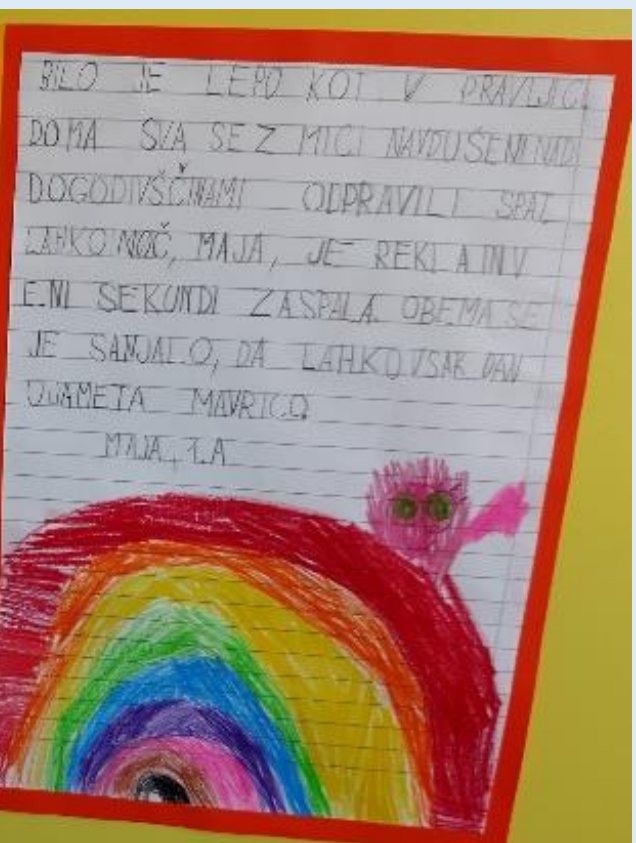 BILO JE LEPO KOT V PRAVLJICI
DOMA SVA SE Z MICI NAVDUŠENI NAD
DOGODIVŠČINAMI ODPRAVILI SPAT
LAHKO NOČ, MAJA, JE REKLA IN V
ENI SEKUNDI ZASPALA. OBEMA SE
JE SANJALO, DA LAHKO VSAK DAN
UJAMETA MAVRICO
MAJA, 1.A